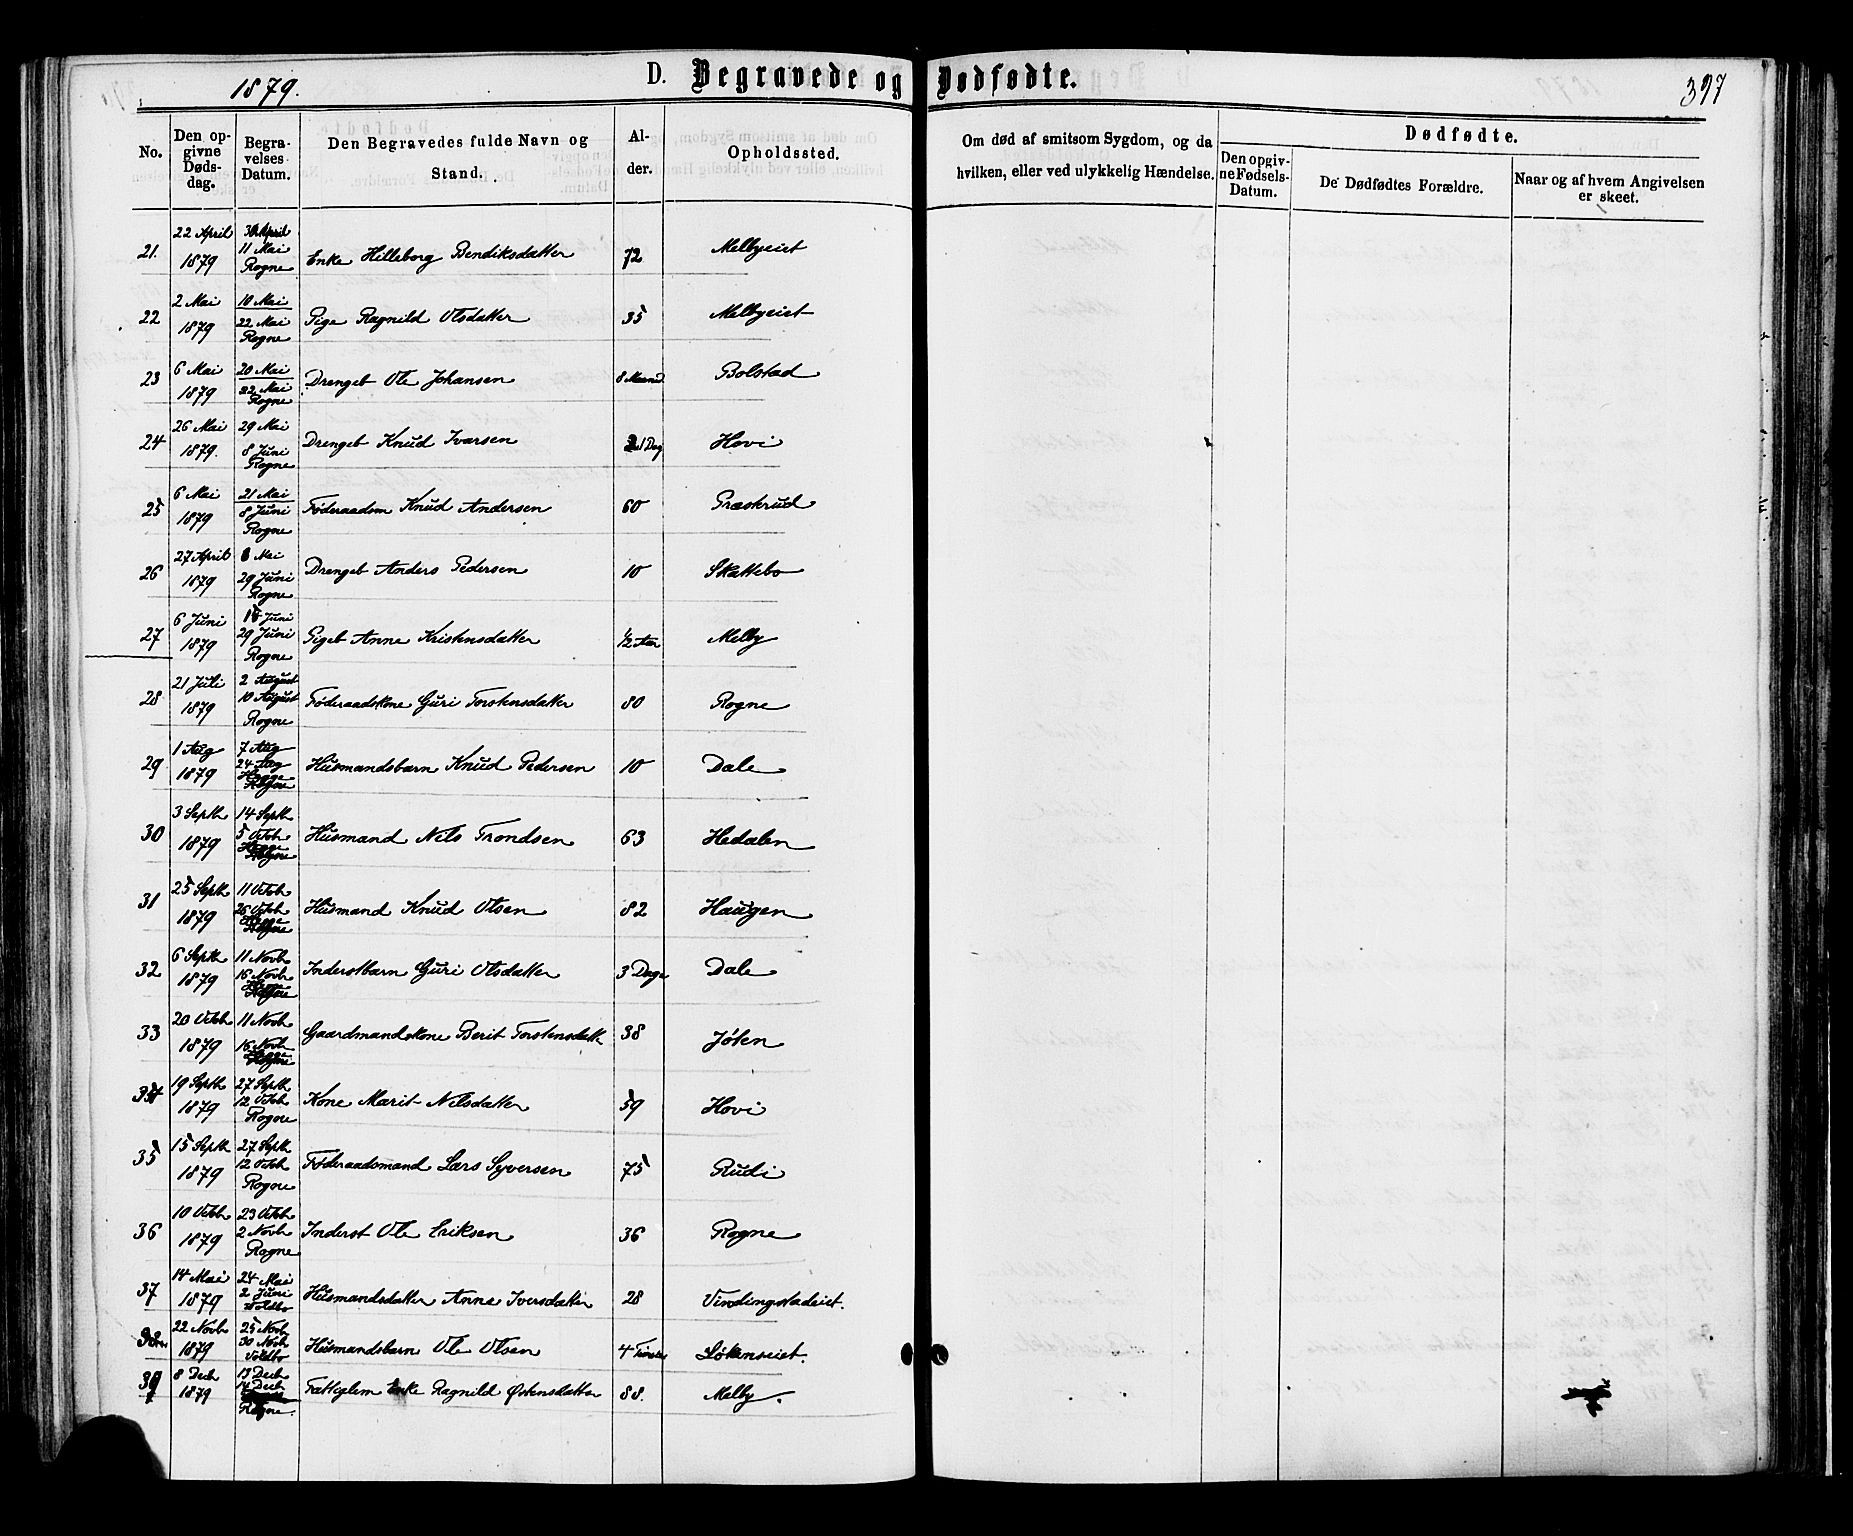 1879.
D. Begravede og Dødfødte.
397
No.
Den opgivne Dødsdag.
Begravelses Datum.
Den Begravedes fulde Navn og Stand.
Alder.
Opholdssted.
Om død af smitsom Sygdom, og da hvilken, eller ved ulykkelig Hændelse.
Dødfødte.
Den opgivne Fødsels-Datum.
De Dødfødtes Forældre.
Naar og af hvem Angivelsen er skeet.
21. 22 April 1879 30 April 11 Mai Rogne Enke Hilleborg Bendiksdatter 72 Melbyeiet
22 2 Mai 1879 10 Mai 22 Mai Rogne Pige Ragnild Olsdatter 35 Melbyeiet
23 6 Mai 1879 20 Mai 22 Mai Rogne Drengeb Ole Johansen 8 Maaned Bolstad
24 26 Mai 1879. 29 Mai 8 Juni Rogne Drengeb Knud Ivarsen 1 Dag Hovi
25 6 Mai 1879 21 Mai 8 Juni Rogne Føderaadsm Knud Andersen 60 Præstrud
26 27 April 1879 8 Mai 29 Juni Rogne Drengeb Anders Pedersen 10 Skattebo
27 6 Juni 1879 15 Juni 29 Juni Rogne Pigeb Anne Kristensdatter 1/2 Aar Melby
28 21 Juli 1879 2 August 10 August Rogne Føderaadskone Guri Torstensdatter 80 Rogne
29 1 Aug 1879 7 Aug 24 Aug Hegge Husmandsbarn Knud Pedersen 10 Dale
30 3 Septb 1879 14 Septb 5 Octob Hegge Husmand Nils Trondsen 63 Hedalen
31 25 Septb 1879 11 Octob 26 Octob Hegge Husmand Knud Olsen 82 Haugen
32 6 Septb 1879 11 Novb 16 Novb Hegge Inderstbarn Guri Olsdatter 3 Dage Dale
33 20 Octob 1879 11 Novb 16 Novb Hegge Gaardmandskone Berit Torstensdatt 38 Jøten
34 19 Septb 1879 27 Septb 12 Octob Rogne Kone Marit Nilsdatter 59 Hovi
35 15 Septb 1879 27 Septb 12 Octob Rogne Føderaadsmand Lars Syversen 75 Rudi
36 10 Octob 1879 23 Octob 2 Novb Rogne Inderst Ole Eriksen 36 Rogne
37 14 Mai 1879 24 Mai 2 Juni Volbo Husmandsdatter Anne Iversdatter 28 Vindingstadeiet.
22 Novb 1879 25 Novb 30 Novb Volbo Husmandsbarn Ole Olsen 4 Timer Løkenseiet.
39 8 Decb 1879 13 Decb 14 Decb Rogne. Fattiglem Enke Ragnild Østensdatter 88. Melby.